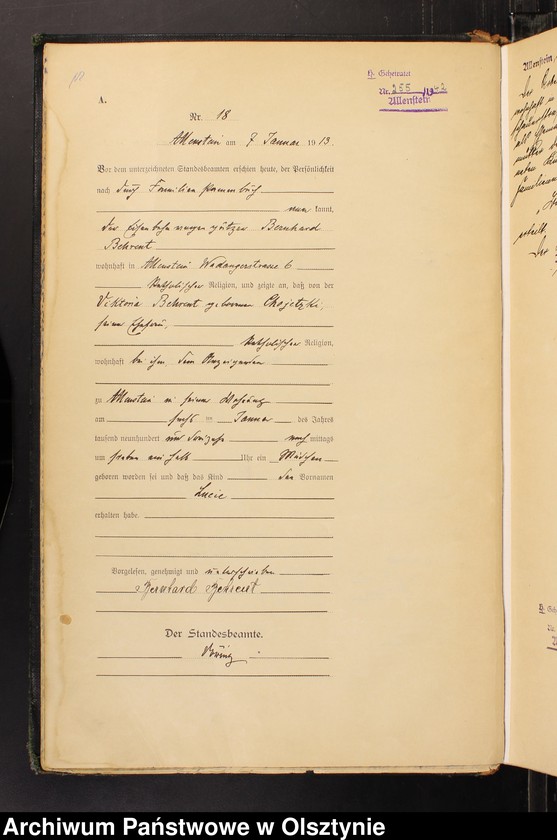 H. Geheiratet
Nr. 255 1942
Allenstein
A.
Nr. 18
Allenstein am 7 Januar 1913.
Vor dem unterzeichneten Standesbeamten erschien heute, der Persönlichkeit
nach durch Familien Stammbuch
kannt,
der Eisenbahnwagenputzer Bernhard
Behrent
wohnhaft in Allenstein Wadangerstrasse 6
katholischer Religion, und zeigte an, daß von der
Viktoria Behrent geborenen Chojetzki,
seiner Ehefrau,
katholischer Religion,
wohnhaft bei ihm, dem Anzeigenden
zu Allenstein in seiner Wohnung
am sechs ten Januar des Jahres
tausend neunhundert und dreizehn nachmittags
um sieben ein halb Uhr ein Mädchen
geboren worden sei und daß das Kind den Vornamen
Lucie
erhalten habe.
Vorgelesen, genehmigt und unterschrieben
Bernhard Behrent
Der Standesbeamte.
Allenstein,
Archiwum Państwowe w Olsztynie